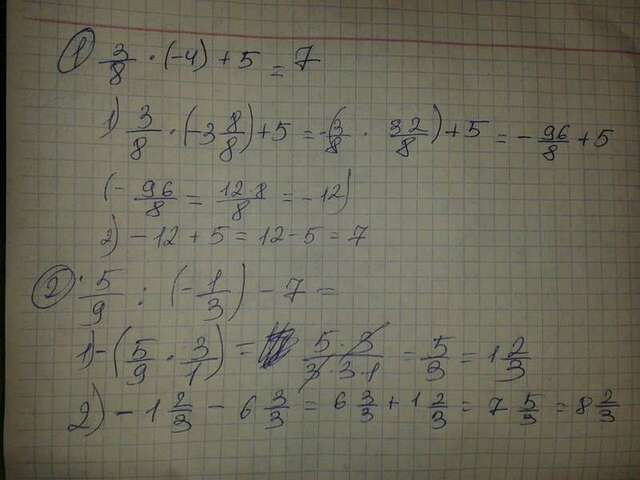 ① 3/8 · (-4) + 5 = 7
1) 3/8 · (-3 8/8) + 5 = -(3/8 · 32/8) + 5 = - 96/8 + 5
(- 96/8 = 12·8/8 = -12)
2) -12 + 5 = 12 - 5 = 7
② 5/9 : (- 1/3) - 7 =
1) -(5/9 · 3/1) = 5·3/3·3·1 = 5/3 = 1 2/3
2) - 1 2/3 - 6 3/3 = 6 3/3 + 1 2/3 = 7 5/3 = 8 2/3